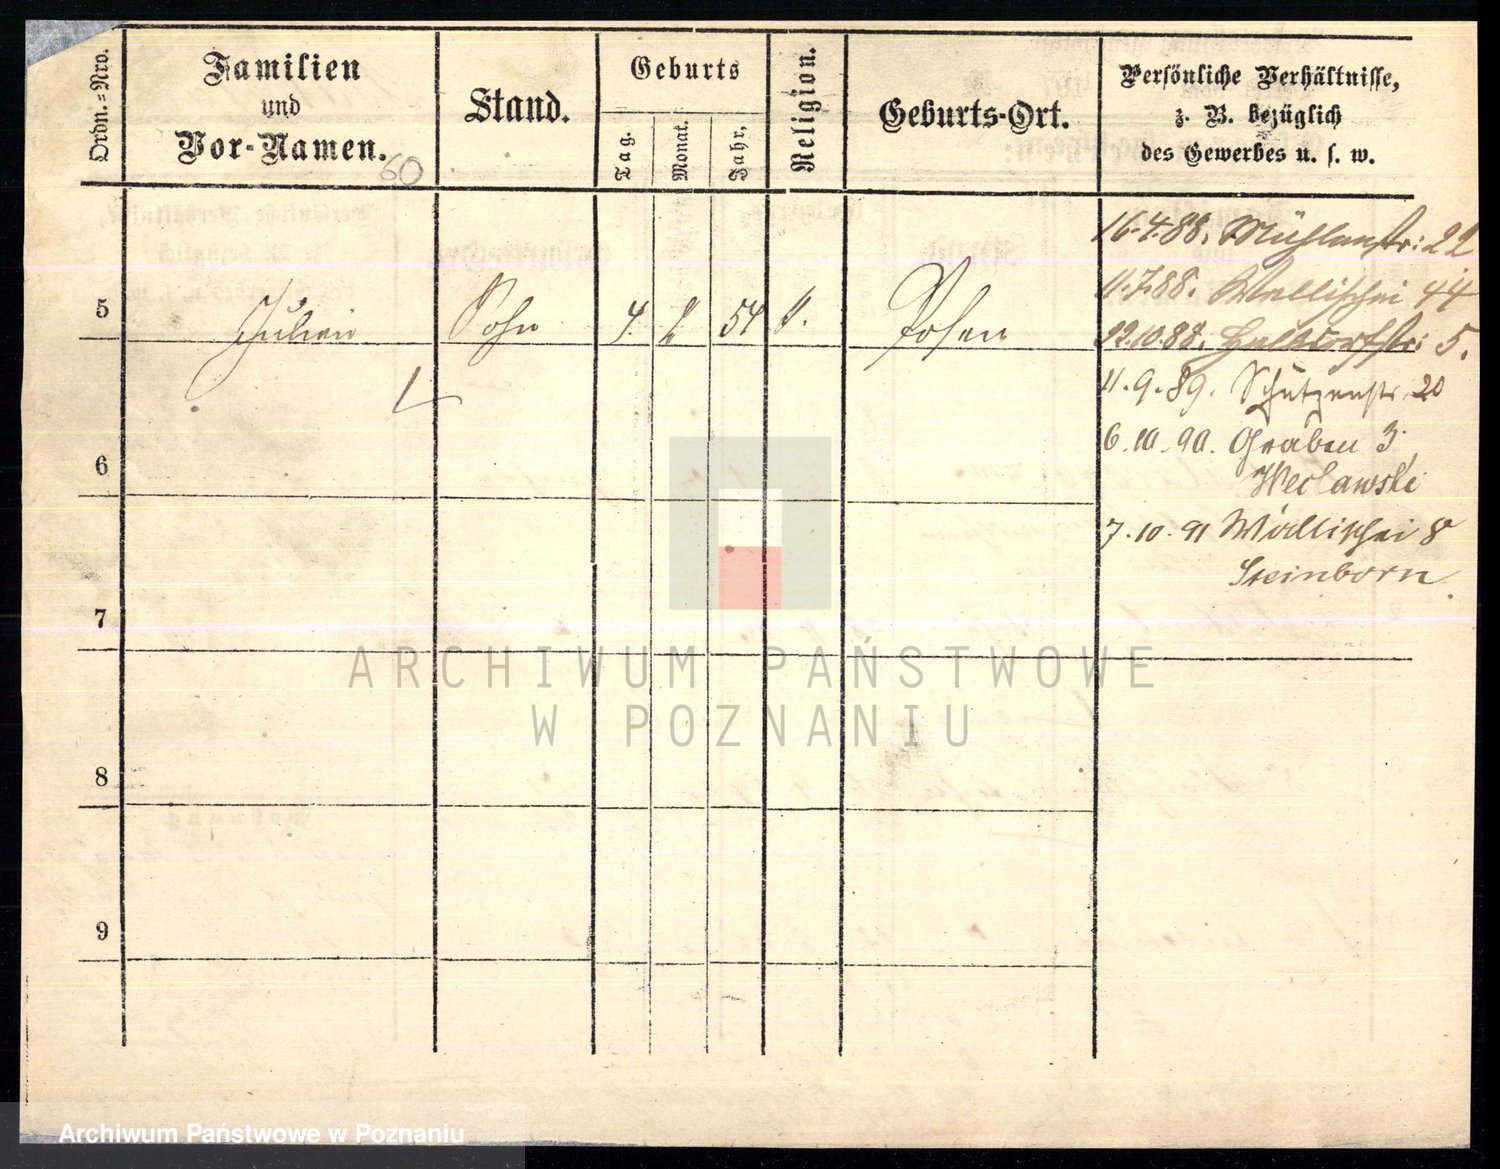 Ordn.-Nro.
Familien
und
Vor-Namen.
60
Stand.
Geburts
Tag.
Monat.
Jahr,
Religion.
Geburts-Ort.
Persönliche Verhältnisse,
z. B. bezüglich
des Gewerbes u. s. w.
5
Julian
Sohn
4.
2
54
Posen
16.4.88. Mühlenstr: 22
11.7.88. Wallischei 44
22.10.88. Halbdorfstr: 5.
11.9.89. Schützenstr. 20
6.10.90. Graben 3
Węcławski
7.10.91 Wallischei 8
Steinborn
6
7
8
9
ARCHIWUM PAŃSTWOWE
W POZNANIU
Archiwum Państwowe w Poznaniu